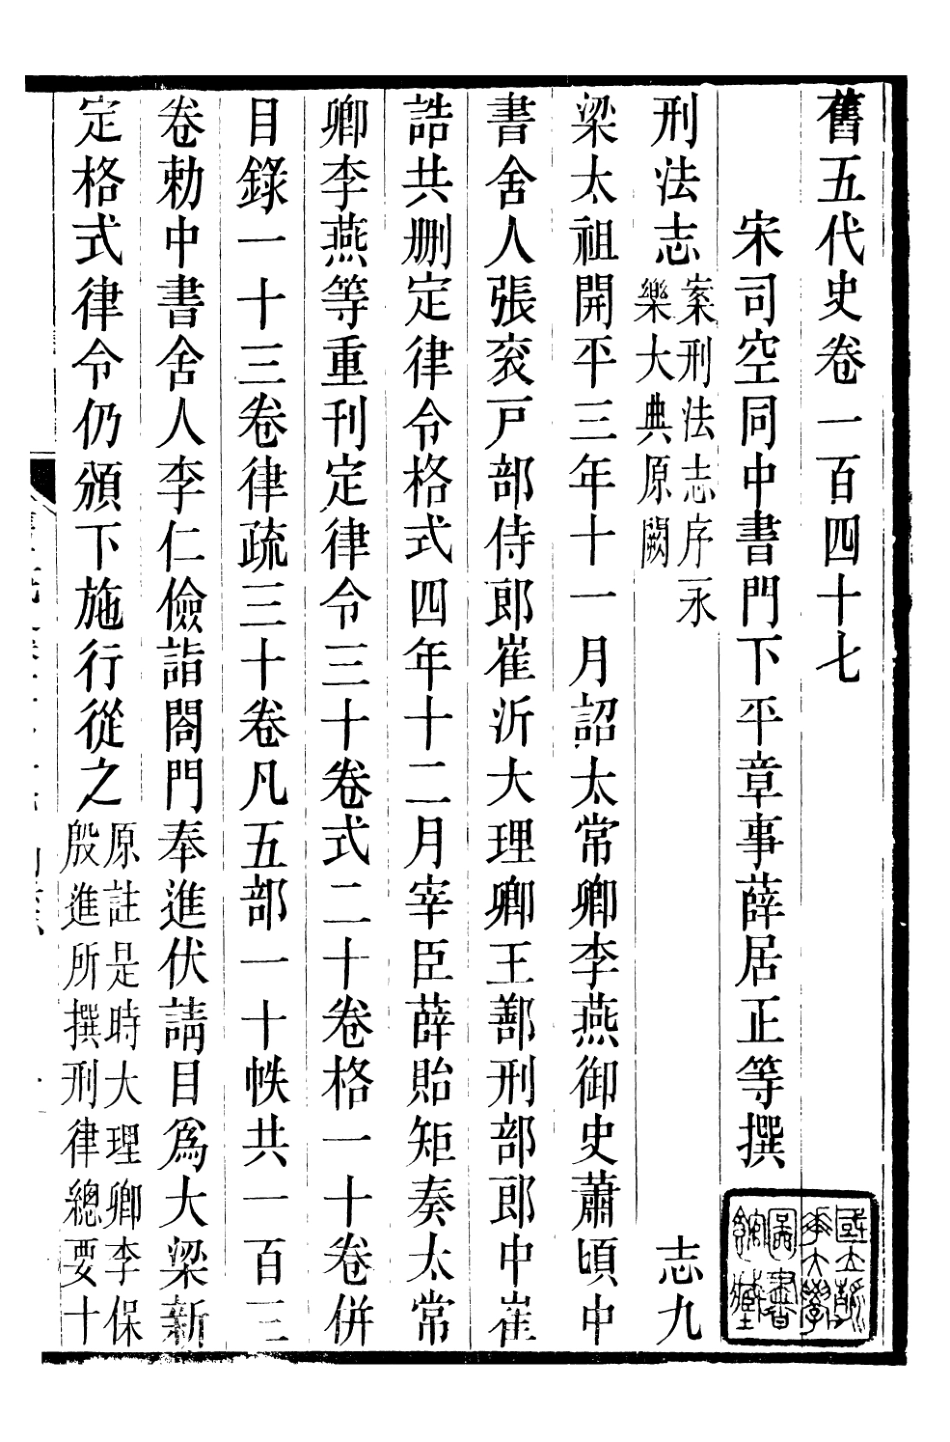 舊五代史卷一百四十七
宋司空同中書門下平章事薛居正等撰
刑法志 案刑法志序永樂大典原闕 志九
梁太祖開平三年十一月詔太常卿李燕御史蕭頃中
書舍人張袞戸部侍郎崔沂大理卿王鄯刑部郎中崔
誥共删定律令格式四年十二月宰臣薛貽矩奏太常
卿李燕等重刊定律令三十卷式二十卷格一十卷併
目錄一十三卷律疏三十卷凡五部一十帙共一百三
卷勅中書舍人李仁儉詣閤門奉進伏請目爲大梁新
定格式律令仍頒下施行從之 原註是時大理卿李保
殷進所撰刑律總要十
國立清華大學圖書館藏